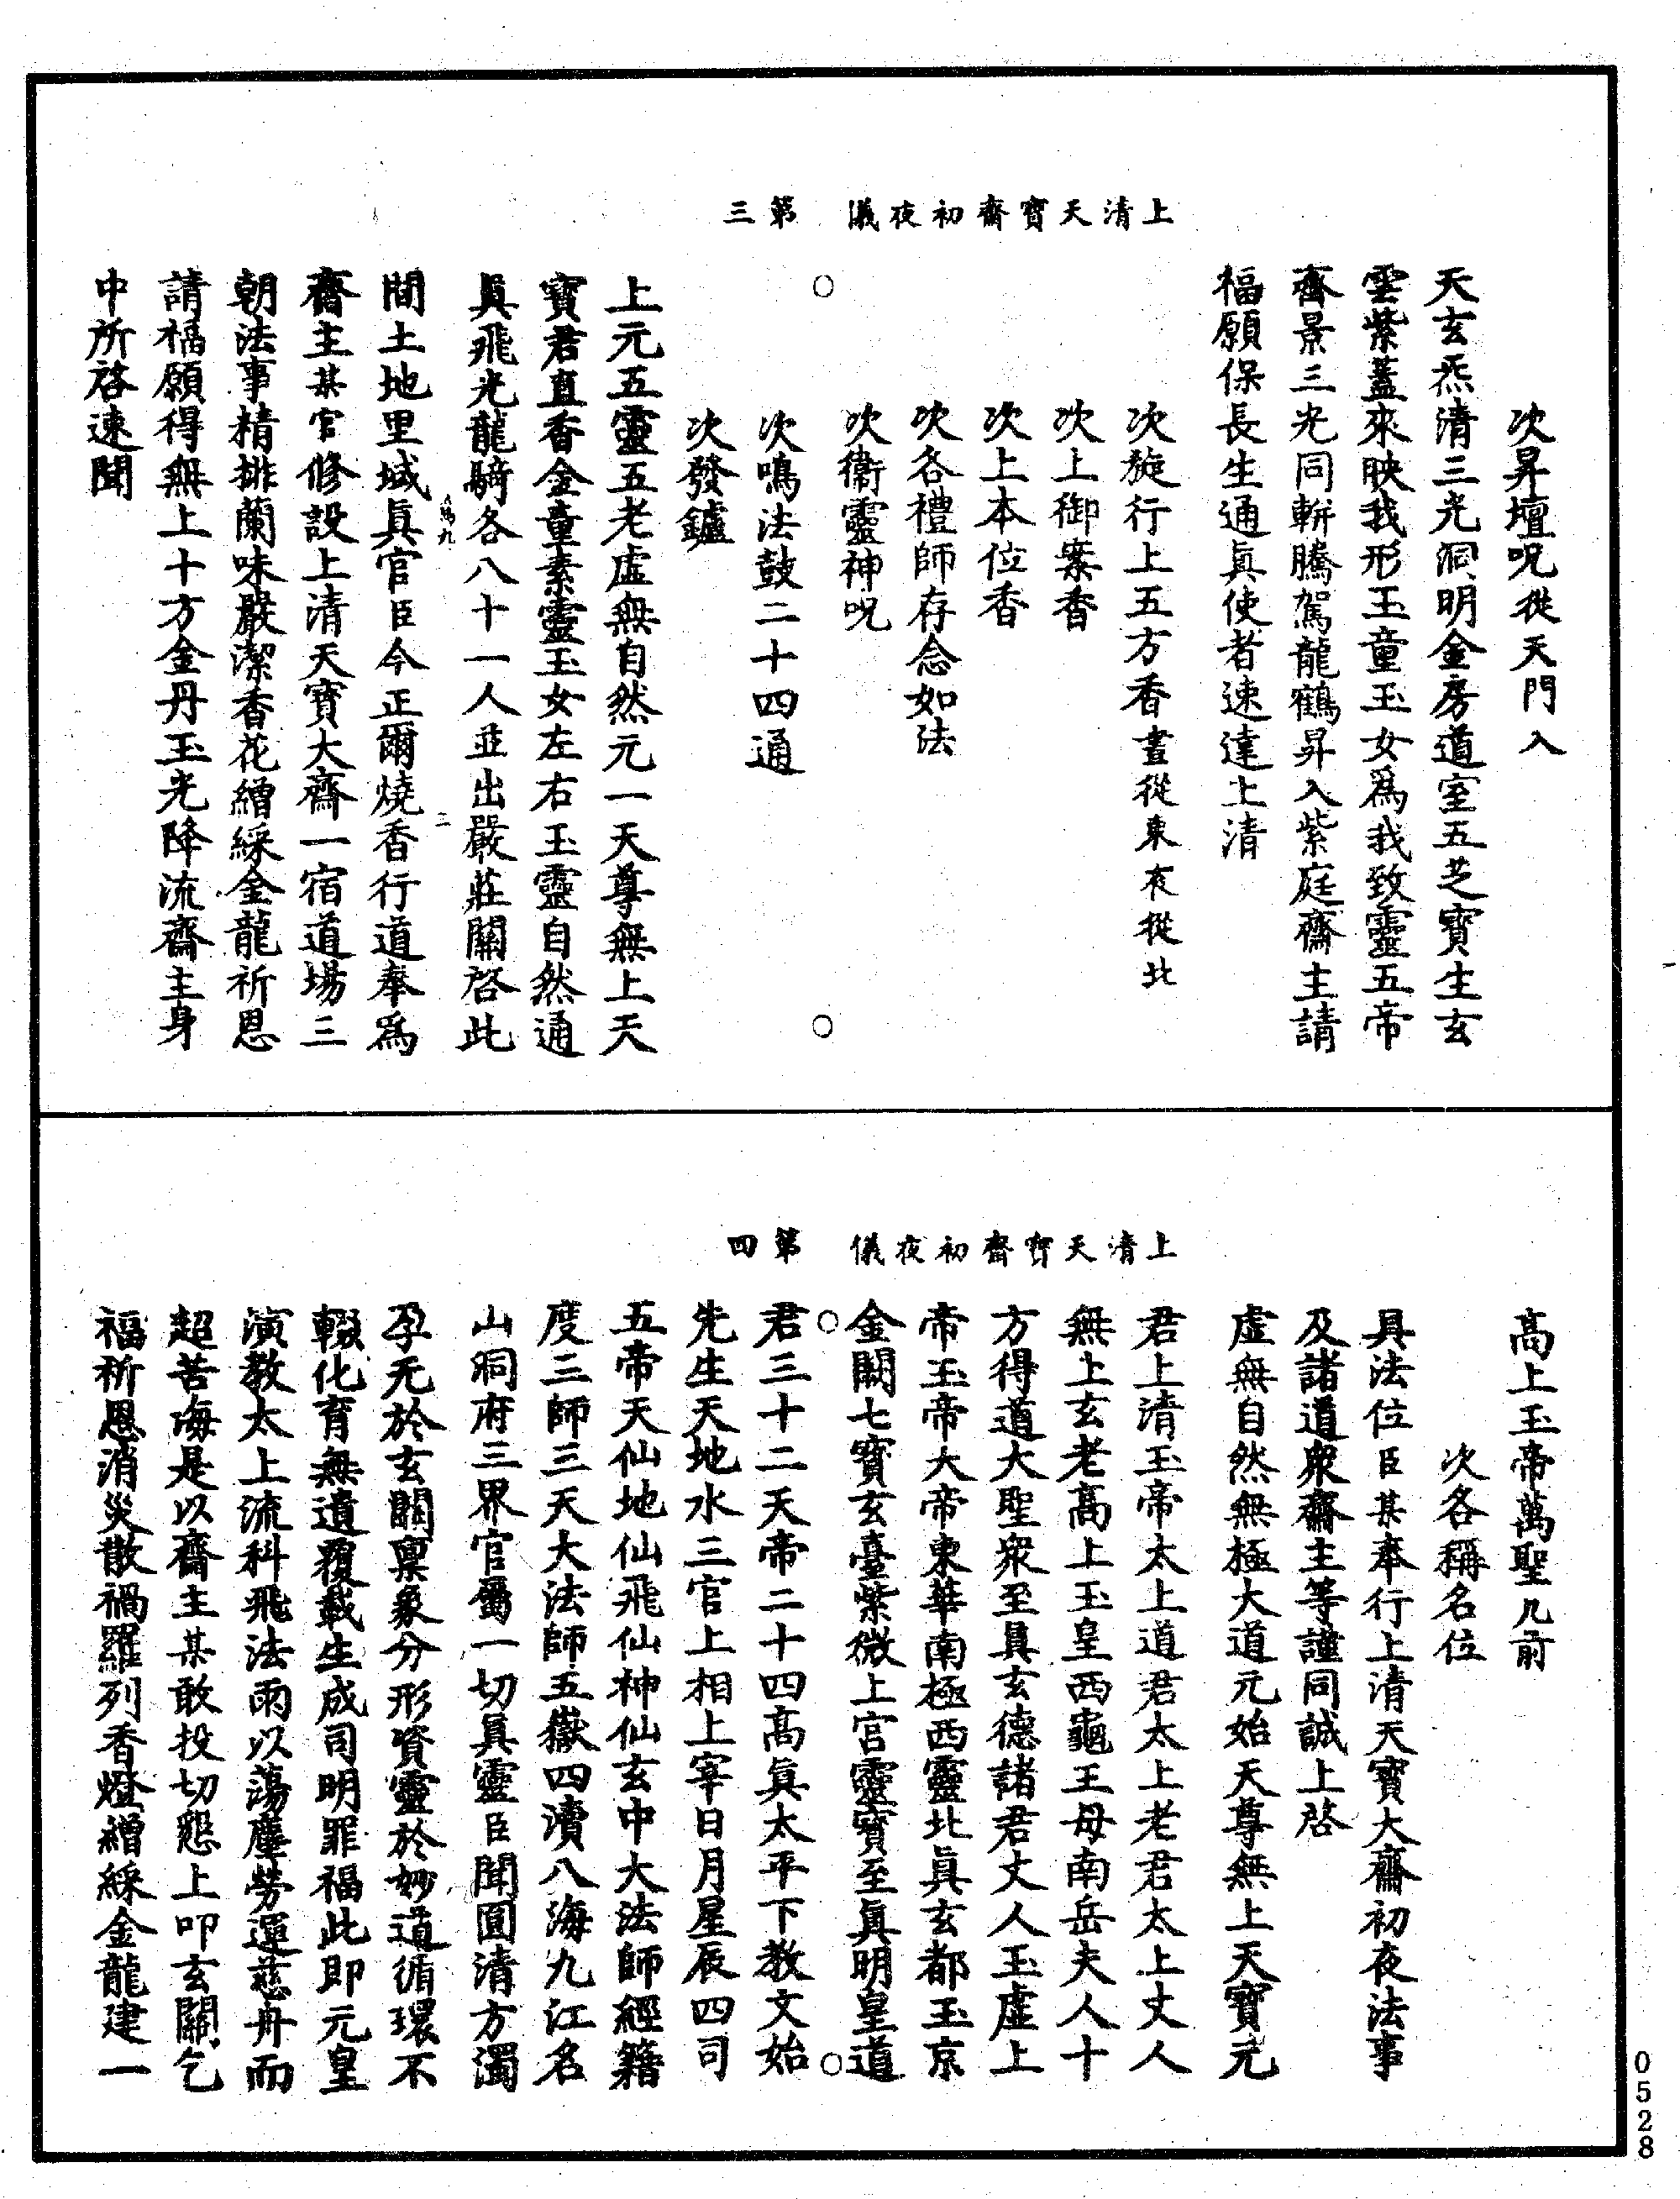 上清天寶齋初夜儀　第三
次昇壇呪從天門入
天玄炁清三光洞明金房道室五芝寶生玄
雲紫蓋來映我形玉童玉女爲我致靈五帝
齋景三光同輧騰駕龍鶴昇入紫庭齋主請
福願保長生通眞使者速達上清
次旋行上五方香晝從東夜從北
次上御案香
次上本位香
次各禮師存念如法
次衞靈神呪
次鳴法鼓二十四通
次發鑪
上元五靈五老虛無自然元一天尊無上天
寶君直香金童素靈玉女左右玉靈自然通
眞飛光龍騎各八十一人並出嚴莊關啓此
間土地里域眞官臣今正爾燒香行道奉爲
齋主某官修設上清天寶大齋一宿道場三
朝法事精排蘭味嚴潔香花繒綵金龍祈恩
請福願得無上十方金丹玉光降流齋主身
中所啓速聞
上清天寶齋初夜儀　第四
高上玉帝萬聖几前
次各稱名位
具法位臣某奉行上清天寶大齋初夜法事
及諸道衆齋主等謹同誠上啓
虛無自然無極大道元始天尊無上天寶元
君上清玉帝太上道君太上老君太上丈人
無上玄老高上玉皇西龜王母南岳夫人十
方得道大聖衆至眞玄德諸君丈人玉虛上
帝玉帝大帝東華南極西靈北眞玄都玉京
金闕七寶玄臺紫微上宮靈寶至眞明皇道
君三十二天帝二十四高眞太平下教文始
先生天地水三官上相上宰日月星辰四司
五帝天仙地仙飛仙神仙玄中大法師經籍
度三師三天大法師五嶽四瀆八海九江名
山洞府三界官屬一切眞靈臣聞圓清方濁
孕无於玄關稟象分形資靈於妙道循環不
輟化育無遺覆載生成司明罪福此即元皇
演教太上流科飛法雨以蕩塵勞運慈舟而
超苦海是以齋主某敢投切懇上叩玄關乞
福祈恩消災散禍羅列香燈繒綵金龍建一
0528